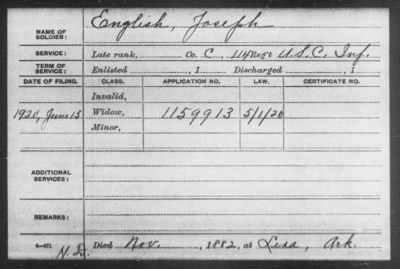 NAME OF SOLDIER: English, Joseph
SERVICE: Late rank, Co. C, 114 Reg't U.S.C. Inf.
TERM OF SERVICE: Enlisted , 1 Discharged , 1
DATE OF FILING. CLASS. APPLICATION NO. LAW. CERTIFICATE NO.
Invalid,
1920, June 15 Widow, 1159913 5/1/20
Minor,
ADDITIONAL SERVICES:
REMARKS:
Died Nov. , 1882, at Ark.